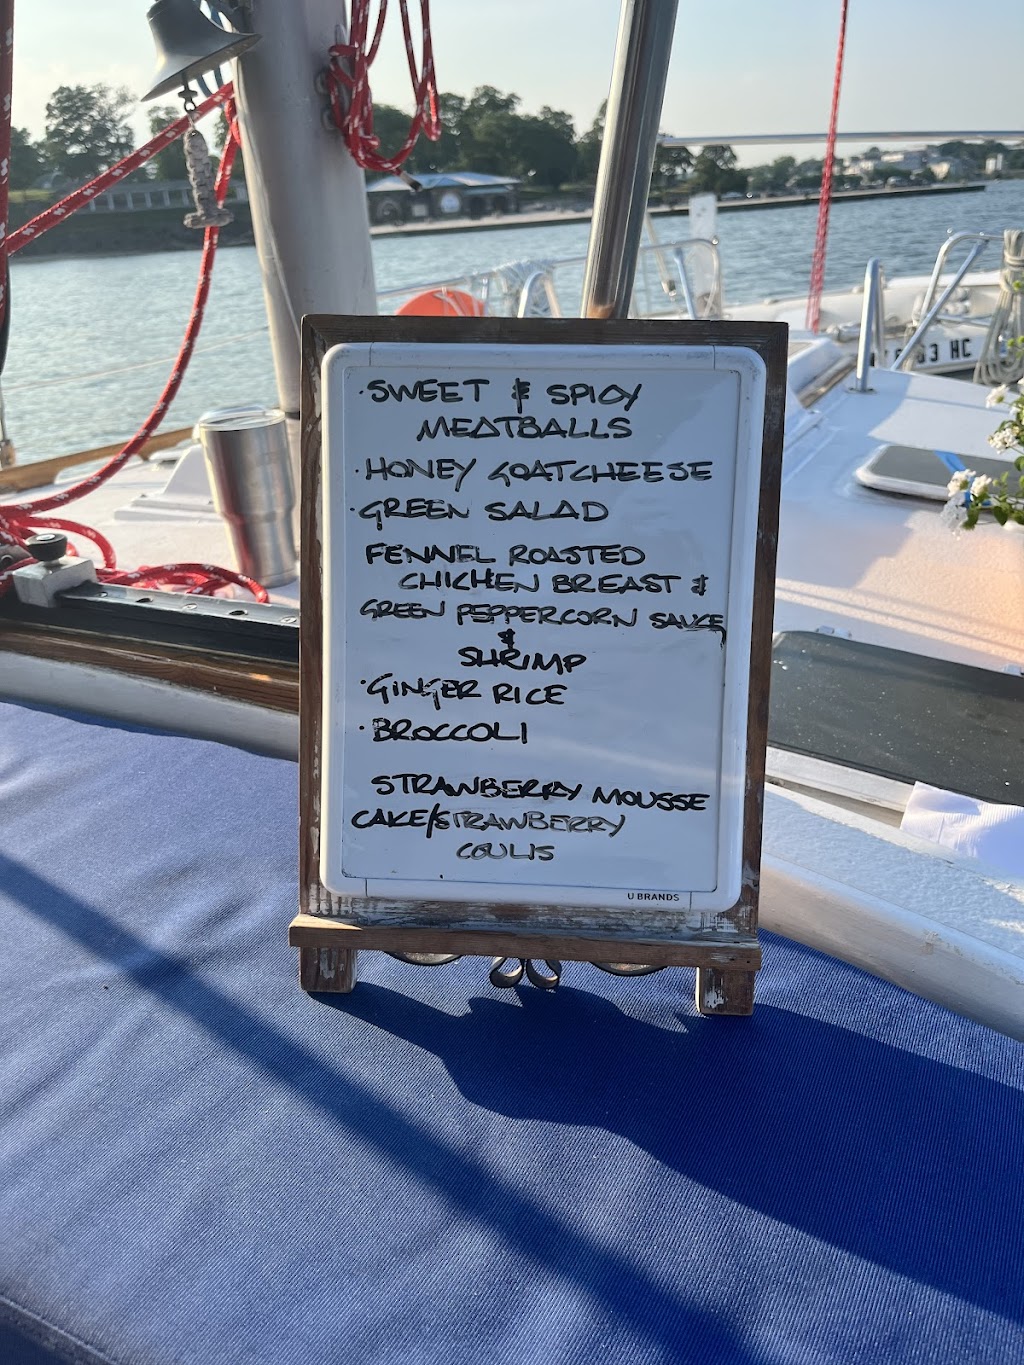 ·SWEET & SPICY
MEATBALLS
·HONEY GOATCHEESE
·GREEN SALAD
FENNEL ROASTED
CHICKEN BREAST &
GREEN PEPPERCORN SAUCE
&
SHRIMP
·GINGER RICE
·BROCCOLI
STRAWBERRY MOUSSE
CAKE/STRAWBERRY
COULIS
U BRANDS
63 HC